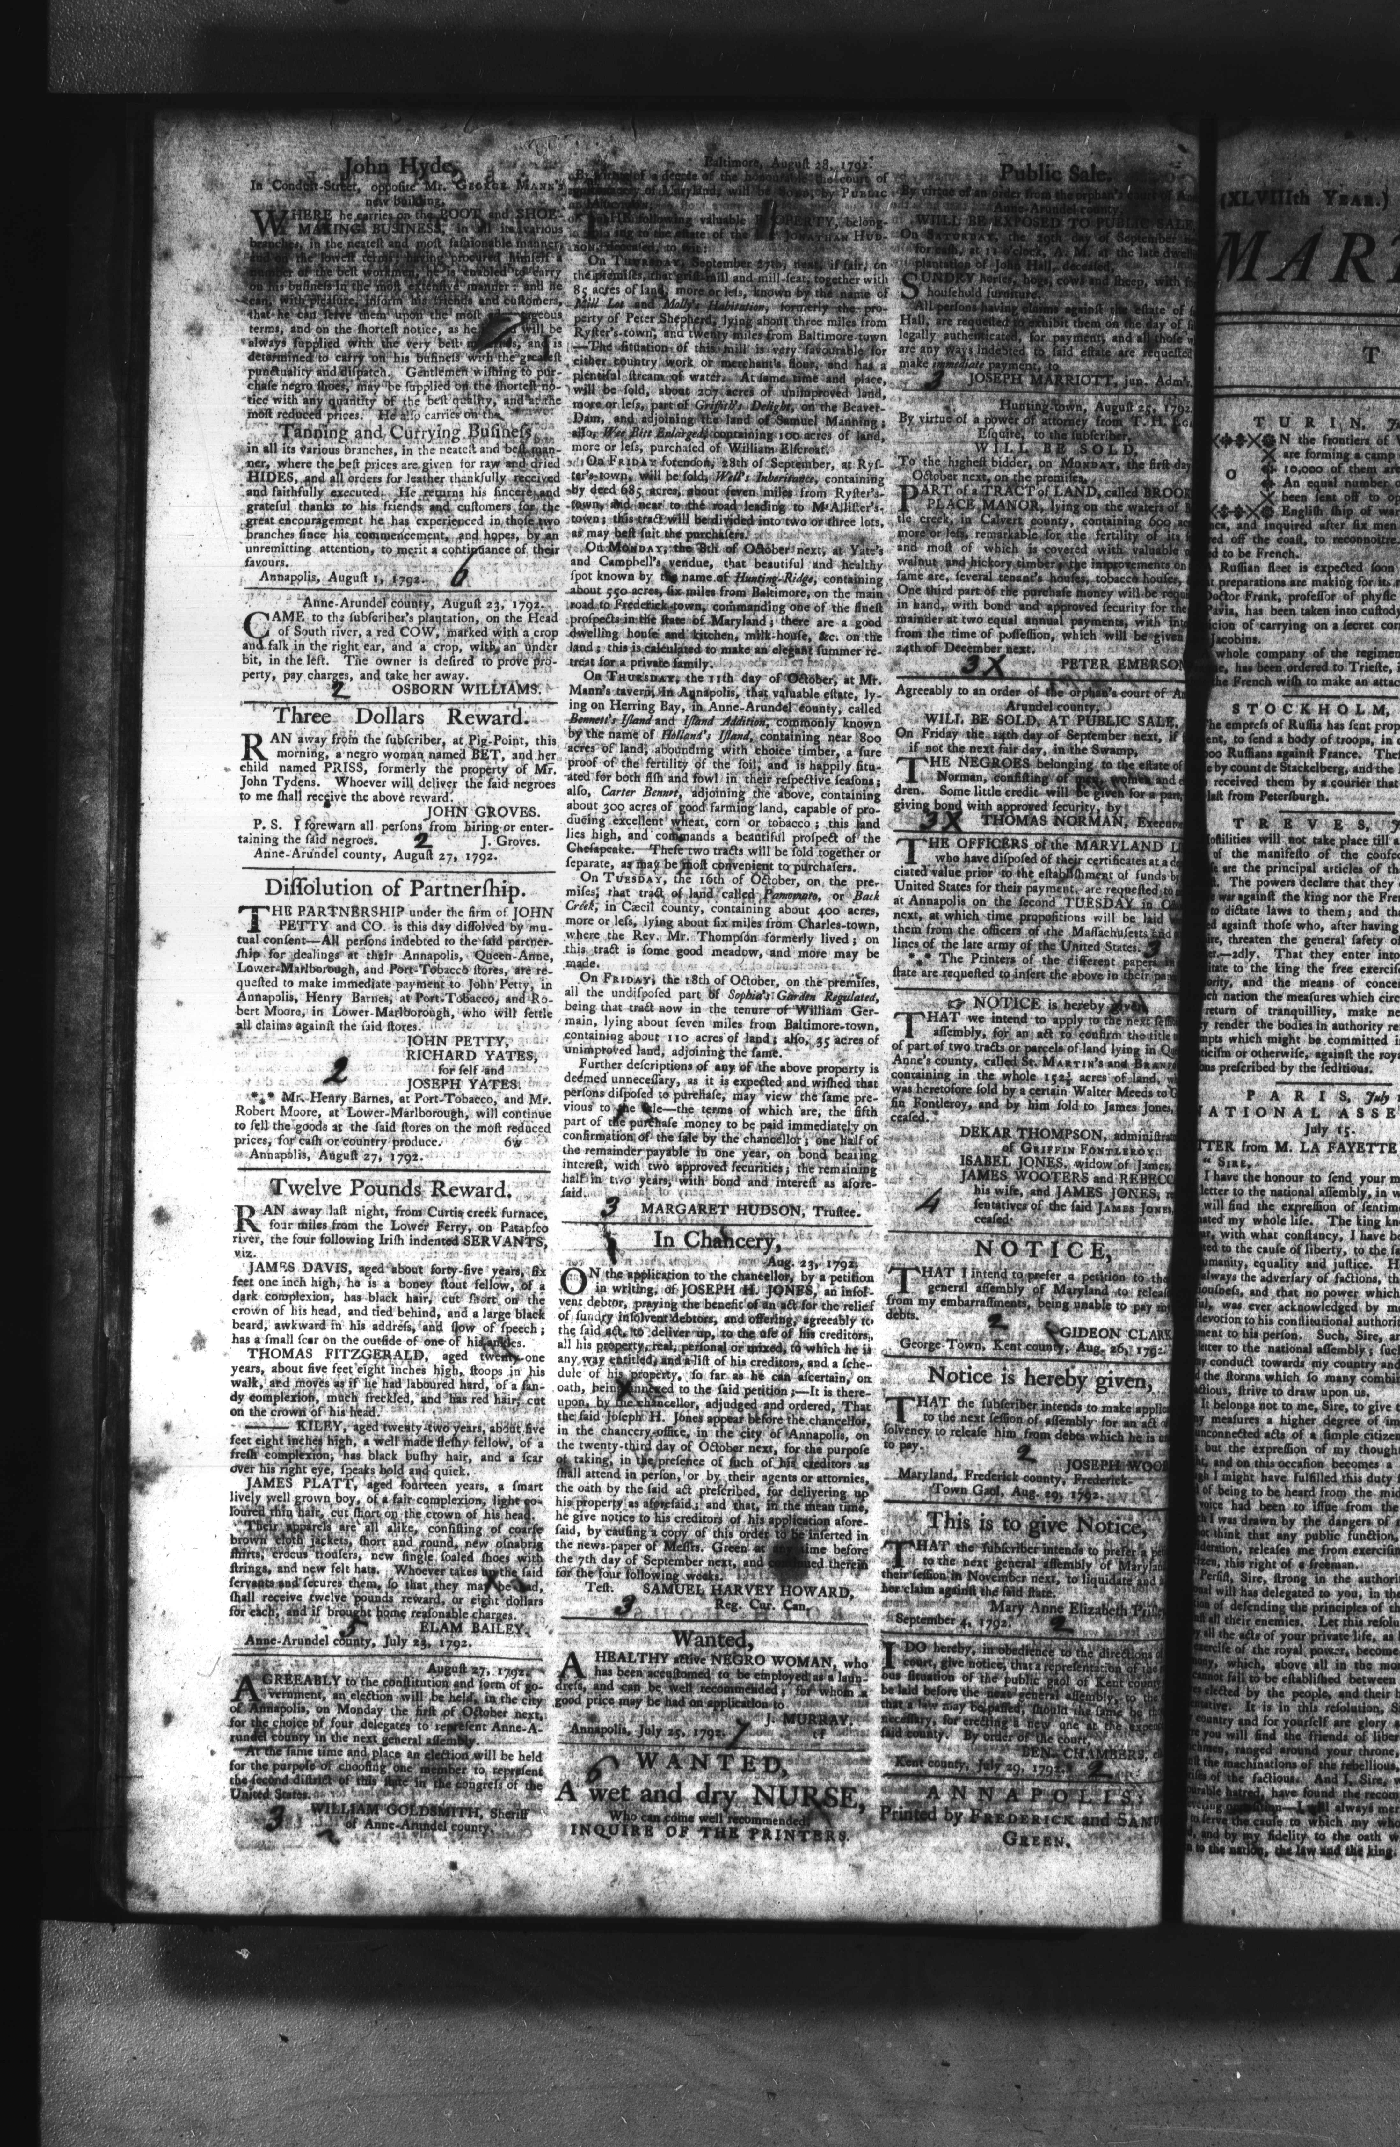 John Hyde,
In Conduit-Street, opposite Mr. GEORGE MANN's
new building,
WHERE he carries on the BOOT and SHOE-
MAKING BUSINESS, in all its various
branches, in the neatest and most fashionable manner,
and on the lowest terms; having procured himself a
number of the best workmen, he is enabled to carry
on his business in the most extensive manner: and he
can, with pleasure, inform his friends and customers,
that he can serve them upon the most
terms, and on the shortest notice, as he will be
always supplied with the very best and is
determined to carry on his business with the greatest
punctuality and dispatch. Gentlemen wishing to pur-
chase negro shoes, may be supplied on the shortest no-
tice with any quantity of the best quality, and at the
most reduced prices. He also carries on the
Tanning and Currying Business,
in all its various branches, in the neatest and best man-
ner, where the best prices are given for raw and dried
HIDES, and all orders for leather thankfully received
and faithfully executed. He returns his sincere and
grateful thanks to his friends and customers for the
great encouragement he has experienced in those two
branches since his commencement, and hopes, by an
unremitting attention, to merit a continuance of their
favours.
Annapolis, August 1, 1792. 6
Anne-Arundel county, August 23, 1792.
CAME to the subscriber's plantation, on the Head
of South river, a red COW, marked with a crop
and falk in the right ear, and a crop, with an under
bit, in the left. The owner is desired to prove pro-
perty, pay charges, and take her away.
2 OSBORN WILLIAMS.
Three Dollars Reward.
RAN away from the subscriber, at Pig-Point, this
morning, a negro woman named BET, and her
child named PRISS, formerly the property of Mr.
John Tydens. Whoever will deliver the said negroes
to me shall receive the above reward.
JOHN GROVES.
P. S. I forewarn all persons from hiring or enter-
taining the said negroes. 2 J. Groves.
Anne-Arundel county, August 27, 1792.
Dissolution of Partnership.
THE PARTNERSHIP under the firm of JOHN
PETTY and CO. is this day dissolved by mu-
tual consent—All persons indebted to the said partner-
ship for dealings at their Annapolis, Queen-Anne,
Lower-Marlborough, and Port-Tobacco stores, are re-
quested to make immediate payment to John Petty, in
Annapolis, Henry Barnes, at Port-Tobacco, and Ro-
bert Moore, in Lower-Marlborough, who will settle
all claims against the said stores.
JOHN PETTY,
RICHARD YATES,
for self and
2 JOSEPH YATES.
*** Mr. Henry Barnes, at Port-Tobacco, and Mr.
Robert Moore, at Lower-Marlborough, will continue
to sell the goods at the said stores on the most reduced
prices, for cash or country produce. 6w
Annapolis, August 27, 1792.
Twelve Pounds Reward.
RAN away last night, from Curtis creek furnace,
four miles from the Lower Ferry, on Patapsco
river, the four following Irish indented SERVANTS,
viz.
JAMES DAVIS, aged about forty-five years, six
feet one inch high, he is a boney stout fellow, of a
dark complexion, has black hair, cut short on the
crown of his head, and tied behind, and a large black
beard, awkward in his address, and slow of speech;
has a small scar on the outside of one of his ancles.
THOMAS FITZGERALD, aged twenty-one
years, about five feet eight inches high, stoops in his
walk, and moves as if he had laboured hard, of a san-
dy complexion, much freckled, and has red hair, cut
on the crown of his head.
KILEY, aged twenty-two years, about five
feet eight inches high, a well made fleshy fellow, of a
fresh complexion, has black bushy hair, and a scar
over his right eye, speaks bold and quick.
JAMES PLATT, aged fourteen years, a smart
lively well grown boy, of a fair complexion, light co-
loured thin hair, cut short on the crown of his head.
Their apparels are all alike, consisting of coarse
brown cloth jackets, short and round, new osnabrig
shirts, crocus trousers, new single soaled shoes with
strings, and new felt hats. Whoever takes up the said
servants and secures them, so that they may be had,
shall receive twelve pounds reward, or eight dollars
for each, and if brought home reasonable charges.
5 ELAM BAILEY.
Anne-Arundel county, July 23, 1792.
August 27, 1792.
AGREEABLY to the constitution and form of go-
vernment, an election will be held, in the city
of Annapolis, on Monday the first of October next,
for the choice of four delegates to represent Anne-A-
rundel county in the next general assembly.
At the same time and place an election will be held
for the purpose of choosing one member to represent
the second district of this state in the congress of the
United States.
3 WILLIAM GOLDSMITH, Sheriff
of Anne-Arundel county.
Baltimore, August 28, 1792.
By virtue of a decree of the honourable the court of
chancery of Maryland, will be SOLD, by PUBLIC
THE following valuable PROPERTY, belong-
ing to the estate of the JONATHAN HUD-
SON, deceased, to wit:
On THURSDAY, September 27th, next, if fair, on
the premises, that grist-mill and mill-seat, together with
85 acres of land, more or less, known by the name of
Mill Lot and Molly's Habitation, formerly the pro-
perty of Peter Shepherd, lying about three miles from
Ryster's-town, and twenty miles from Baltimore-town
—The situation of this mill is very favourable for
either country work or merchant's flour, and has a
plentiful stream of water. At same time and place,
will be sold, about 207 acres of unimproved land,
more or less, part of Griffith's Delight, on the Beaver-
Dam, and adjoining the land of Samuel Manning;
also, Wee Bitt Enlarged, containing 100 acres of land,
more or less, purchased of William Elscroat.
On FRIDAY forenoon, 28th of September, at Rys-
ter's-town, will be sold, Well's Inheritance, containing
by deed 685 acres, about seven miles from Ryster's-
town, and near to the road leading to M'Allister's-
town; this tract will be divided into two or three lots,
as may best suit the purchasers.
On MONDAY, the 8th of October next, at Yate's
and Campbell's vendue, that beautiful and healthy
spot known by the name of Hunting-Ridge, containing
about 550 acres, six miles from Baltimore, on the main
road to Frederick-town, commanding one of the finest
prospects in the state of Maryland; there are a good
dwelling house and kitchen, milk-house, &c. on the
land; this is calculated to make an elegant summer re-
treat for a private family.
On THURSDAY, the 11th day of October, at Mr.
Mann's tavern, in Annapolis, that valuable estate, ly-
ing on Herring Bay, in Anne-Arundel county, called
Bennett's Island and Island Addition, commonly known
by the name of Holland's Island, containing near 800
acres of land, abounding with choice timber, a sure
proof of the fertility of the soil, and is happily situ-
ated for both fish and fowl in their respective seasons;
also, Carter Bennet, adjoining the above, containing
about 300 acres of good farming land, capable of pro-
ducing excellent wheat, corn or tobacco; this land
lies high, and commands a beautiful prospect of the
Chesapeake. These two tracts will be sold together or
separate, as may be most convenient to purchasers.
On TUESDAY, the 16th of October, on the pre-
mises, that tract of land called Pamomato, or Back
Creek, in Cæcil county, containing about 400 acres,
more or less, lying about six miles from Charles-town,
where the Rev. Mr. Thompson formerly lived; on
this tract is some good meadow, and more may be
made.
On FRIDAY, the 18th of October, on the premises,
all the undisposed part of Sophia's Garden Regulated,
being that tract now in the tenure of William Ger-
main, lying about seven miles from Baltimore-town,
containing about 110 acres of land; also, 35 acres of
unimproved land, adjoining the same.
Further descriptions of any of the above property is
deemed unnecessary, as it is expected and wished that
persons disposed to purchase, may view the same pre-
vious to the sale—the terms of which are, the fifth
part of the purchase money to be paid immediately on
confirmation of the sale by the chancellor; one half of
the remainder payable in one year, on bond bearing
interest, with two approved securities; the remaining
half in two years, with bond and interest as afore-
said.
3 MARGARET HUDSON, Trustee.
In Chancery,
Aug. 23, 1792.
ON the application to the chancellor, by a petition
in writing, of JOSEPH H. JONES, an insol-
vent debtor, praying the benefit of an act for the relief
of sundry insolvent debtors, and offering, agreeably to
the said act, to deliver up, to the use of his creditors,
all his property, real, personal or mixed, to which he is
any way entitled, and a list of his creditors, and a sche-
dule of his property, so far as he can ascertain, on
oath, being annexed to the said petition;—It is there-
upon, by the chancellor, adjudged and ordered, That
the said Joseph H. Jones appear before the chancellor,
in the chancery-office, in the city of Annapolis, on
the twenty-third day of October next, for the purpose
of taking, in the presence of such of his creditors as
shall attend in person, or by their agents or attornies,
the oath by the said act prescribed, for delivering up
his property as aforesaid; and that, in the mean time,
he give notice to his creditors of his application afore-
said, by causing a copy of this order to be inserted in
the news-paper of Messrs. Green at any time before
the 7th day of September next, and continued therein
for the four following weeks.
Test. SAMUEL HARVEY HOWARD,
3 Reg. Cur. Can.
Wanted,
A HEALTHY active NEGRO WOMAN, who
has been accustomed to be employed as a laun-
dress, and can be well recommended; for whom a
good price may be had on application to
J. MURRAY.
Annapolis, July 25, 1792. 7 tf
6 WANTED,
A wet and dry NURSE,
Who can come well recommended.
INQUIRE OF THE PRINTERS.
Public Sale.
By virtue of an order from the orphan's court of
Anne-Arundel county,
WILL BE EXPOSED TO PUBLIC SALE,
On SATURDAY, the 29th day of September
for cash, at 11 o'clock, A. M. at the late
plantation of John Hall, deceased,
SUNDRY horses, hogs, cows and sheep, with
household furniture.
All persons having claims against the estate of
Hall, are requested to exhibit them on the day of
legally authenticated, for payment, and all those
are any ways indebted to said estate are requested
make immediate payment, to
3 JOSEPH MARRIOTT, jun. Adm'r.
Hunting-town, August 25, 1792.
By virtue of a power of attorney from T. H.
Esquire, to the subscriber,
WILL BE SOLD,
To the highest bidder, on MONDAY, the first day
October next, on the premises,
PART of a TRACT of LAND, called BROOK
PLACE MANOR, lying on the waters of
tle creek, in Calvert county, containing 600
more or less, remarkable for the fertility of its
and most of which is covered with valuable
walnut and hickory timber; the improvements on
same are, several tenant's houses, tobacco houses,
One third part of the purchase money will be
in hand, with bond and approved security for the
mainder at two equal annual payments, with
from the time of possession, which will be given
24th of December next.
3X PETER EMERSON
Agreeably to an order of the orphan's court of
Arundel county,
WILL BE SOLD, AT PUBLIC SALE,
On Friday the 14th day of September next, if
if not the next fair day, in the Swamp,
THE NEGROES belonging to the estate of
Norman, consisting of men, women and
dren. Some little credit will be given for a part,
giving bond with approved security, by
3X THOMAS NORMAN,
THE OFFICERS of the MARYLAND
who have disposed of their certificates at a
ciated value prior to the establishment of funds by
United States for their payment, are requested to
at Annapolis on the second TUESDAY in
next, at which time propositions will be laid
them from the officers of the Massachusetts and
lines of the late army of the United States. 3
*** The Printers of the different papers in
state are requested to insert the above in their
☞ NOTICE is hereby given,
THAT we intend to apply to the next
assembly, for an act to confirm the title
of part of two tracts or parcels of land lying in
Anne's county, called St. MARTIN's and
containing in the whole 152½ acres of land,
was heretofore sold by a certain Walter Meeds to
fin Fontleroy, and by him sold to James Jones,
ceased.
DEKAR THOMPSON,
of GRIFFIN FONTLEROY.
ISABEL JONES, widow of James,
JAMES WOOTERS and
his wife, and JAMES JONES,
4 sentatives of the said JAMES JONES,
ceased.
NOTICE,
THAT I intend to prefer a petition to the
general assembly of Maryland to release
from my embarrassments, being unable to pay my
debts.
2 GIDEON CLARK
George-Town, Kent county, Aug. 26, 1792.
Notice is hereby given,
THAT the subscriber intends to make
to the next session of assembly for an act of
solvency to release him from debts which he is
to pay.
2 JOSEPH
Maryland, Frederick county, Frederick-
Town Gaol, Aug. 29, 1792.
This is to give Notice,
THAT the subscriber intends to prefer a
to the next general assembly of
their session in November next, to liquidate and
her claim against the said state.
Mary Anne Elizabeth
September 4, 1792. 2
I DO hereby, in obedience to the directions of
court, give notice, that a representation of the
ous situation of the public gaol of Kent county
be laid before the next general assembly, to the
that a law may be passed, should the same be
necessary, for erecting a new one at the expence
said county. By order of the court,
BEN. CHAMBERS,
Kent county, July 29, 1792. 2
ANNAPOLIS:
Printed by FREDERICK and
GREEN.
(XLVIIIth YEAR.)
MAR
T
TURIN,
ON the frontiers of
are forming a camp
10,000 of them are
An equal number
been sent off to
English ship of war
and inquired after six
off the coast, to reconnoitre.
to be French.
Russian fleet is expected soon
preparations are making for its
Doctor Frank, professor of physic
Pavia, has been taken into custody
of carrying on a secret
Jacobins.
whole company of the regiment
has been ordered to Trieste,
the French wish to make an
STOCKHOLM,
The empress of Russia has sent
to send a body of troops, in
Russians against France. The
by count de Stackelberg, and the
received them by a courier that
last from Petersburgh.
TREVES,
Hostilities will not take place till
of the manifesto of the
are the principal articles of
The powers declare that they
war against the king nor the
to dictate laws to them; and
against those who, after having
threaten the general safety
2dly. That they enter into
to the king the free
and the means of
nation the measures which
return of tranquillity, make
render the bodies in authority
which might be committed
or otherwise, against the
prescribed by the seditious.
PARIS, July
NATIONAL
July 15.
LETTER from M. LA FAYETTE
SIRE,
I have the honour to send your
letter to the national assembly, in
will find the expression of
my whole life. The king
with what constancy, I have
to the cause of liberty, to the
humanity, equality and justice.
always the adversary of factions,
and that no power which
was ever acknowledged by
devotion to his constitutional
to his person. Such, Sire,
letter to the national assembly;
conduct towards my country
the storms which so many
strive to draw upon us.
It belongs not to me, Sire, to give
measures a higher degree of
unconnected acts of a simple citizen
but the expression of my
and on this occasion becomes a
I might have fulfilled this duty
of being to be heard from the
voice had been to issue from the
I was drawn by the dangers of
not think that any public function,
releases me from
this right of a freeman.
Persist, Sire, strong in the
will has delegated to you, in
of defending the principles of
all their enemies. Let this
all the acts of your private life,
exercise of the royal power,
which, above all in the
cannot fail to be established between
elected by the people, and their
It is in this resolution,
country and for yourself are glory
you will find the friends of
ranged around your throne,
the machinations of the rebellious,
of the factious. And I, Sire,
hatred, have found the
I shall always
to serve the cause to which my
and by my fidelity to the oath
to the nation, the law and the king.